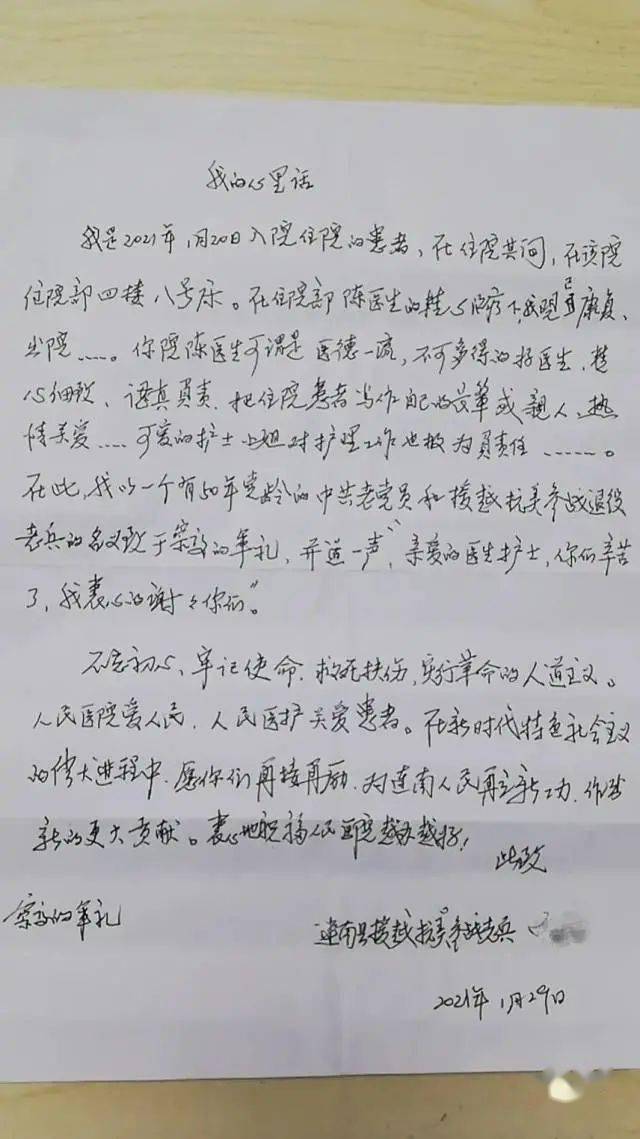 我的心里话
我是2021年1月20日入院住院的患者，在住院其间，在该院
住院部四楼八号床。在住院部陈医生的精心治疗下，我现已康复
出院……。你院陈医生可谓是医德一流，不可多得的好医生，精
心细致、认真負责，把住院患者当作自己的长辈或親人，热
情关爱……可爱的护士小姐对护理工作也极为負责任……。
在此，我以一个有50年党龄的中共老党员和援越抗美参战退役
老兵的名义致于崇高的军礼，并道一声“亲爱的医生护士，你们辛苦
了，我衷心的谢々你们”。
不忘初心，牢记使命，救死扶伤，实行革命的人道主义。
人民医院爱人民，人民医护关爱患者。在新时代特色社会主义
的伟大进程中，愿你们再接再励，为连南人民再立新功，作出
新的更大贡献。衷心地祝福人民医院越办越好！
此致
崇高的军礼
连南县援越抗美参战老兵
2021年1月29日